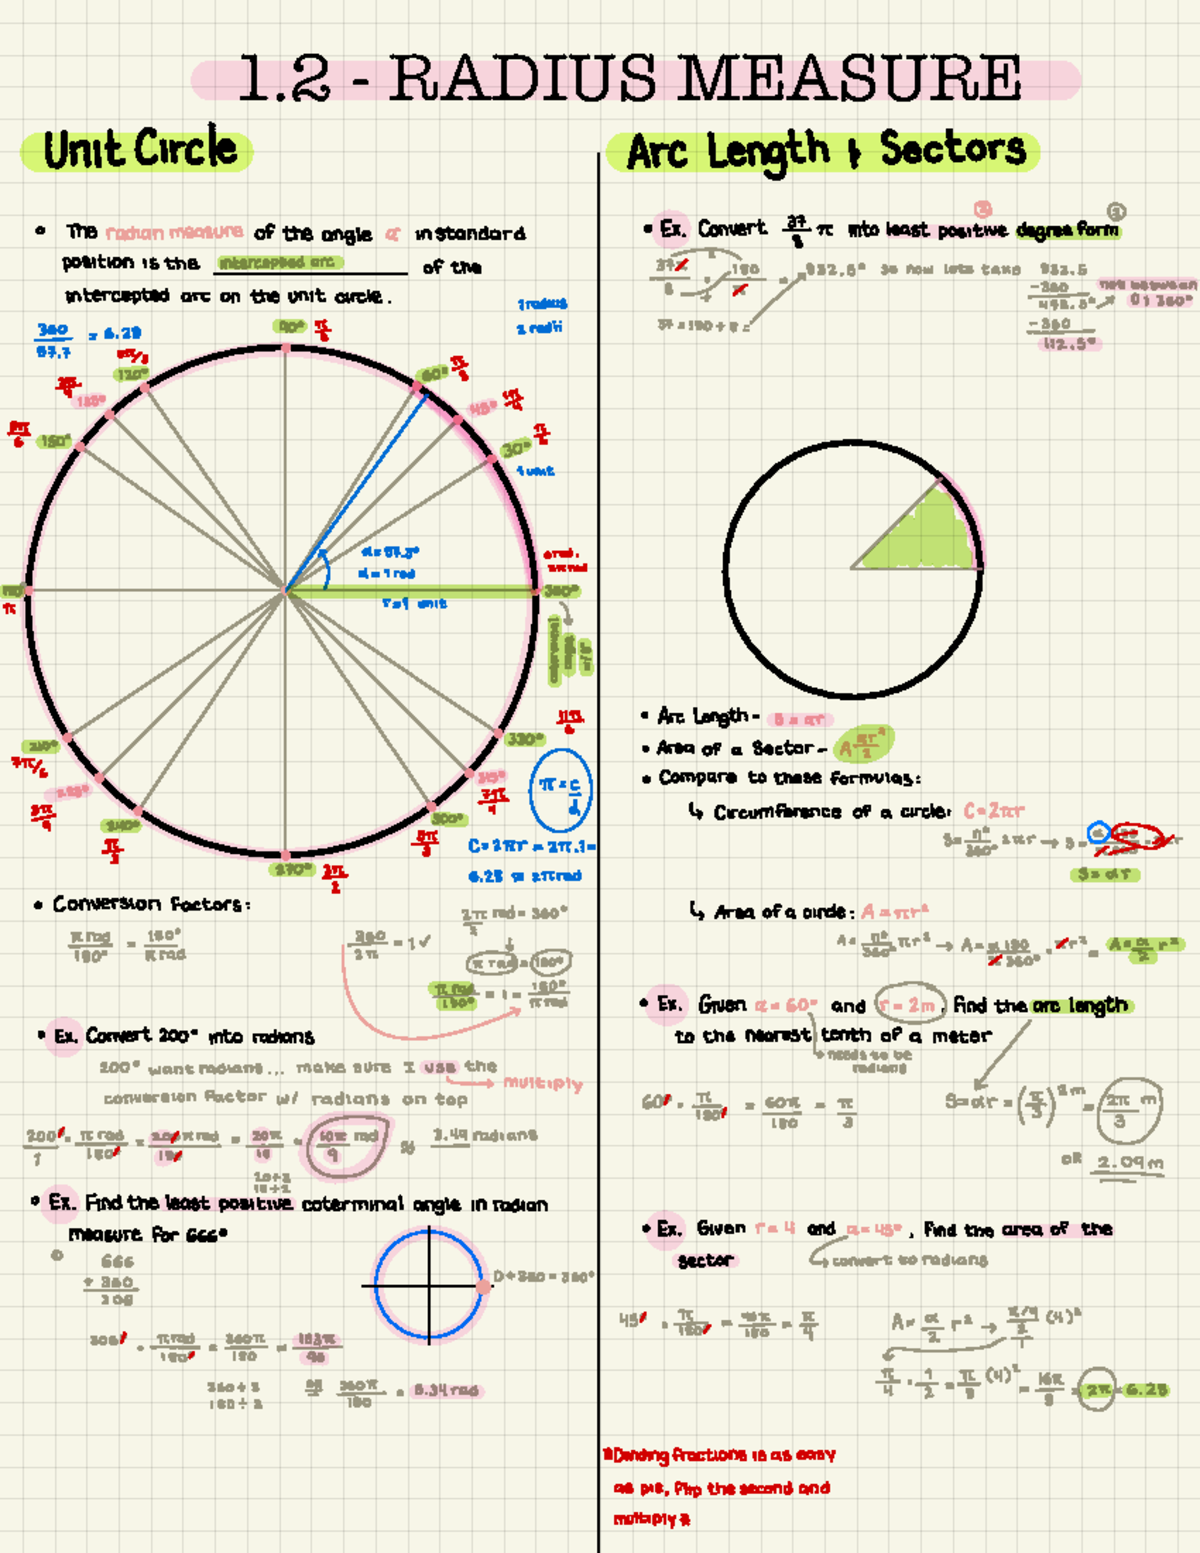 1.2 - RADIUS MEASURE
Unit Circle
• The radian measure of the angle α in standard
position is the intercepted arc of the
intercepted arc on the unit circle.
1 radius
360/57.7 = 6.28
90°
120°
60°
45°
30°
150°
1 unit
α = 57.3°
α = 1 rad
r = 1 unit
360°
π
330°
11π/6
210°
7π/6
315°
7π/4
300°
5π/3
240°
270°
3π/2
π = C/d
C = 2πr = 2π.1 =
6.28 = 2π rad
• Conversion Factors:
π rad/180° = 180°/π rad
360/2π = 1 ✓
2π/2 rad = 360°
π rad = 180°
π rad/180° = 1 = 180°/π rad
• Ex. Convert 200° into radians
200° want radians... make sure I use the
→ multiply
conversion factor w/ radians on top
200°/1 · π rad/180° = 200π rad/180 = 20π/18 = 10π/9 rad ≈ 3.49 radians
• Ex. Find the least positive coterminal angle in radian
measure for 666°
666
360
306
306° · π rad/180°
5.34 rad
Arc Length & Sectors
• Ex. Convert 37/8 π into least positive degree form
37π/8 · 180/π = 832.5° so now lets take 832.5
-360
not between
0 & 360°
-360
112.5°
37 × 180 ÷ 8 =
• Arc Length - S = αr
• Area of a Sector - A = αr²/2
• Compare to these formulas:
↳ Circumference of a circle: C = 2πr
S = n°/360° 2πr → S =
S = αr
↳ Area of a circle: A = πr²
A = n°/360° πr² → A = α180/π360° · πr² = A = α/2 r²
• Ex. Given α = 60° and r = 2m, find the arc length
to the nearest tenth of a meter
→ needs to be
radians
60° · π/180° = 60π/180 = π/3
S = αr = (π/3) 2m = 2π/3 m
OR 2.09m
• Ex. Given r = 4 and α = 45°, find the area of the
sector
↳ convert to radians
45° · π/180° = 45π/180 = π/4
A = α/2 r² → π/4/2/1 (4)²
π/4 · 1/2 = π/8 (4)² = 16π/8 = 2π = 6.28
*Dividing fractions is as easy
as pie, flip the second and
multiply*